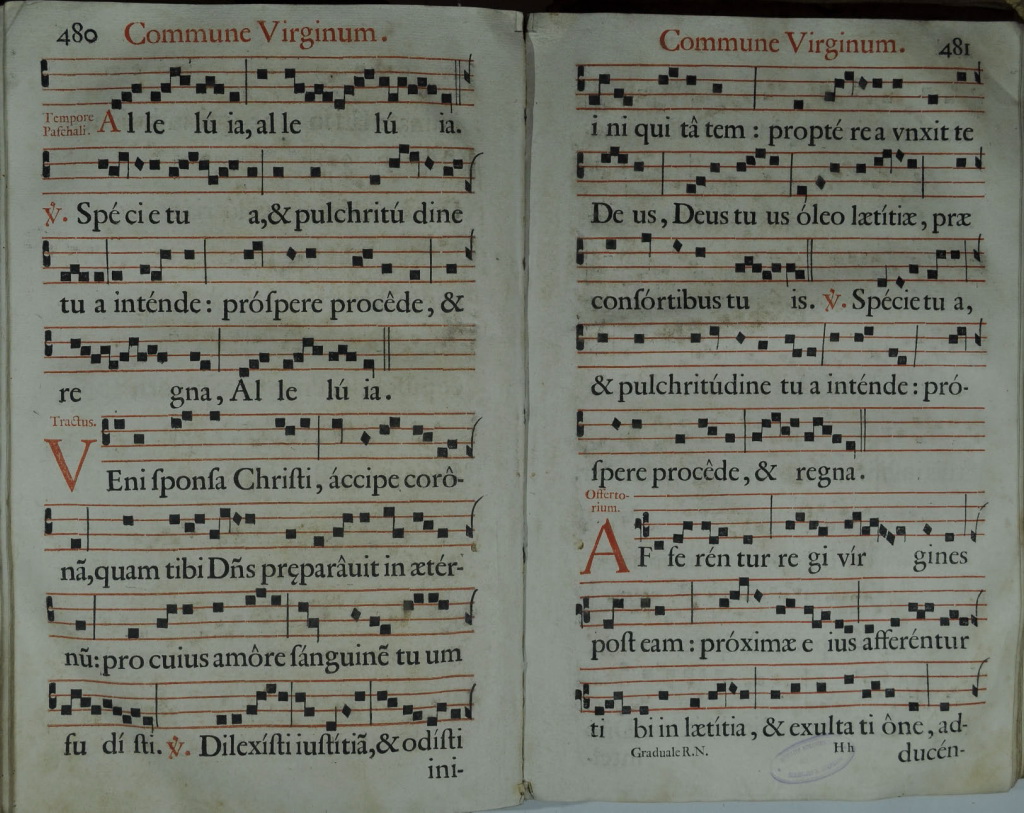 480 Commune Virginum.
Tempore
Paſchali.
Al le lú ia, al le lú ia.
℣. Spé ci e tu a, & pulchritú dine
tu a inténde: próſpere procêde, &
re gna, Al le lú ia.
Tractus.
VEni ſponſa Chriſti, áccipe corô-
nã, quam tibi Dñs pręparâuit in ætér-
nũ: pro cuius amôre ſánguinẽ tu um
fu dí ſti. ℣. Dilexíſti iuſtítiã, & odíſti
ini-
Commune Virginum. 481
i ni qui tâ tem: propté re a vnxit te
De us, Deus tu us óleo lætítiæ, præ
conſórtibus tu is. ℣. Spécie tu a,
& pulchritúdine tu a inténde: pró-
ſpere procêde, & regna.
Offerto-
rium.
AF fe rén tur re gi vír gines
poſt eam: próximæ e ius afferéntur
ti bi in lætítia, & exulta ti ône, ad-
Graduale R.N. H h ducén-